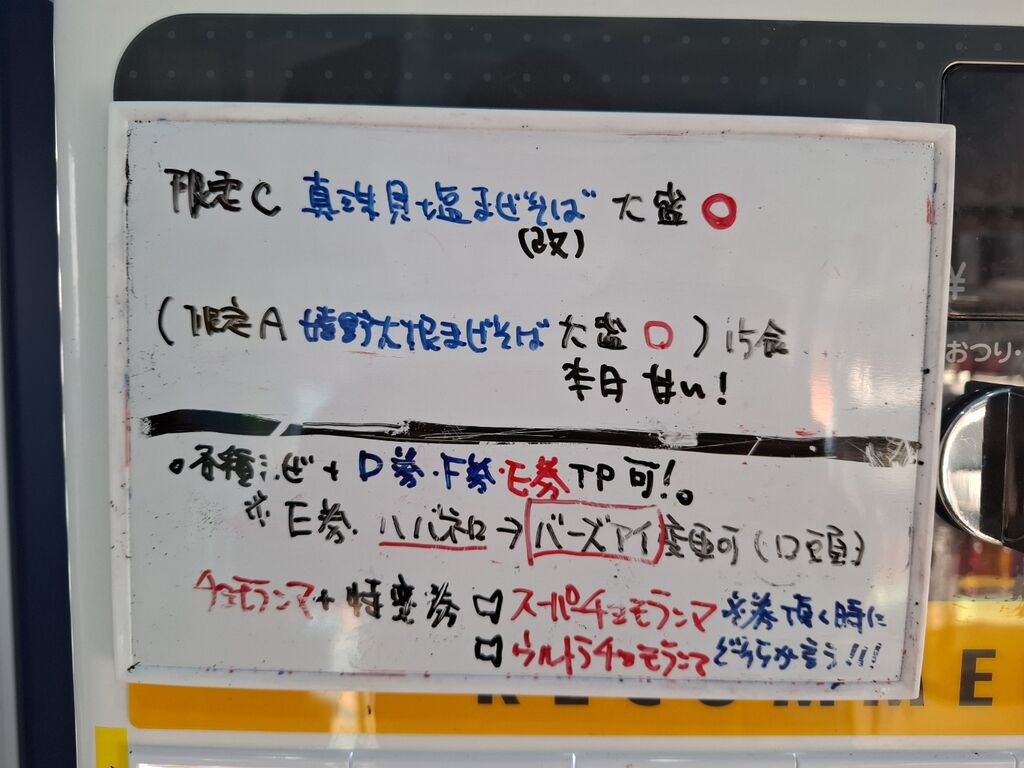 限定C 真珠貝塩まぜそば 大盛 ○
(改)
(限定A 嬉野大根まぜそば 大盛 ○) 15食
本日 甘い!
。各種まぜ+D券・F券・E券TP可!。
※E券. ハバネロ→バーズアイ変更可(口頭)
チョモランマ+特変券 □スーパーチョモランマ ※券頂く時に
□ウルトラチョモランマ どちらか言う!!!
¥
おつり・
RECOMME